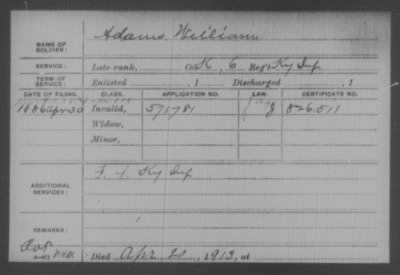 Adams, William
NAME OF SOLDIER:
SERVICE: Late rank, Co. K, 6 Reg't Ky Inf.
TERM OF SERVICE: Enlisted , 1 Discharged , 1
DATE OF FILING. CLASS. APPLICATION NO. LAW. CERTIFICATE NO.
1886 Apr 30 Invalid, 571781 826.511
Widow,
Minor,
ADDITIONAL SERVICES: Ky Inf
REMARKS:
Died Apr 20, 1913, at